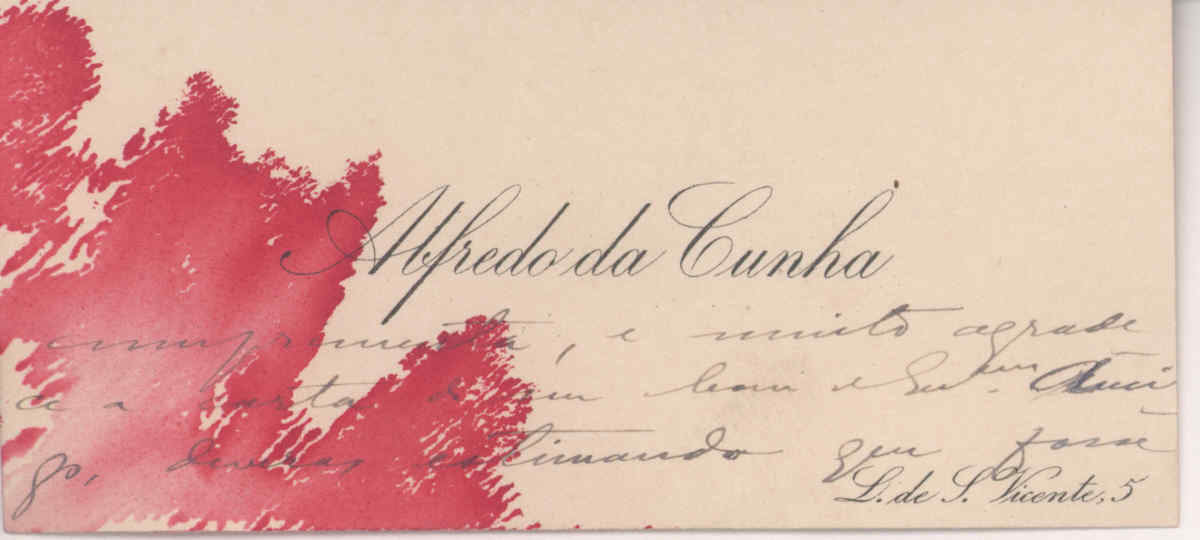 Alfredo da Cunha
cumprimenta, e muito agrade
ce a carta do seu bom e
go, deveras estimando que fosse
L. de S. Vicente, 5